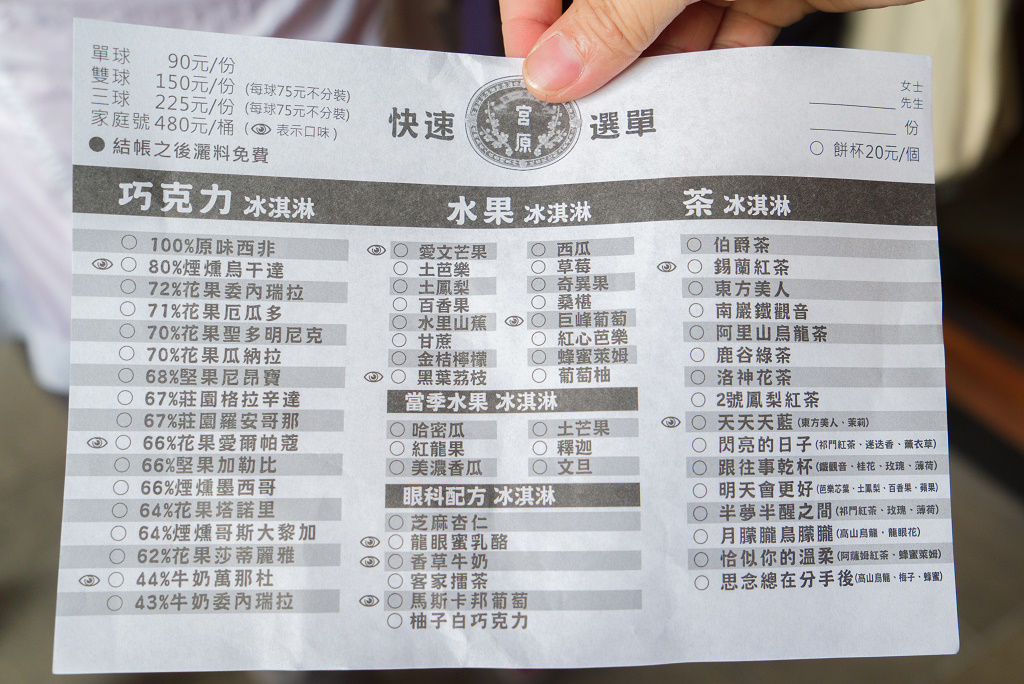 單球 90元/份
雙球 150元/份 (每球75元不分裝)
三球 225元/份 (每球75元不分裝)
家庭號 480元/桶 ( 表示口味)
● 結帳之後灑料免費
快速 宮原 選單
女士
先生
份
○ 餅杯20元/個
巧克力 冰淇淋
○ 100%原味西非
○ 80%煙燻烏干達
○ 72%花果委內瑞拉
○ 71%花果厄瓜多
○ 70%花果聖多明尼克
○ 70%花果瓜納拉
○ 68%堅果尼昂寶
○ 67%莊園格拉辛達
○ 67%莊園羅安哥那
○ 66%花果愛爾帕蔻
○ 66%堅果加勒比
○ 66%煙燻墨西哥
○ 64%花果塔諾里
○ 64%煙燻哥斯大黎加
○ 62%花果莎蒂麗雅
○ 44%牛奶萬那杜
○ 43%牛奶委內瑞拉
水果 冰淇淋
○ 愛文芒果 ○ 西瓜
○ 土芭樂 ○ 草莓
○ 土鳳梨 ○ 奇異果
○ 百香果 ○ 桑椹
○ 水里山蕉 ○ 巨峰葡萄
○ 甘蔗 ○ 紅心芭樂
○ 金桔檸檬 ○ 蜂蜜萊姆
○ 黑葉荔枝 ○ 葡萄柚
當季水果 冰淇淋
○ 哈密瓜 ○ 土芒果
○ 紅龍果 ○ 釋迦
○ 美濃香瓜 ○ 文旦
眼科配方 冰淇淋
○ 芝麻杏仁
○ 龍眼蜜乳酪
○ 香草牛奶
○ 客家擂茶
○ 馬斯卡邦葡萄
○ 柚子白巧克力
茶 冰淇淋
○ 伯爵茶
○ 錫蘭紅茶
○ 東方美人
○ 南巖鐵觀音
○ 阿里山烏龍茶
○ 鹿谷綠茶
○ 洛神花茶
○ 2號鳳梨紅茶
○ 天天天藍 (東方美人、茉莉)
○ 閃亮的日子 (祁門紅茶、迷迭香、薰衣草)
○ 跟往事乾杯 (鐵觀音、桂花、玫瑰、薄荷)
○ 明天會更好 (芭樂芯葉、土鳳梨、百香果、蘋果)
○ 半夢半醒之間 (祁門紅茶、玫瑰、薄荷)
○ 月朦朧鳥朦朧 (高山烏龍、龍眼花)
○ 恰似你的溫柔 (阿薩姆紅茶、蜂蜜萊姆)
○ 思念總在分手後 (高山烏龍、梅子、蜂蜜)